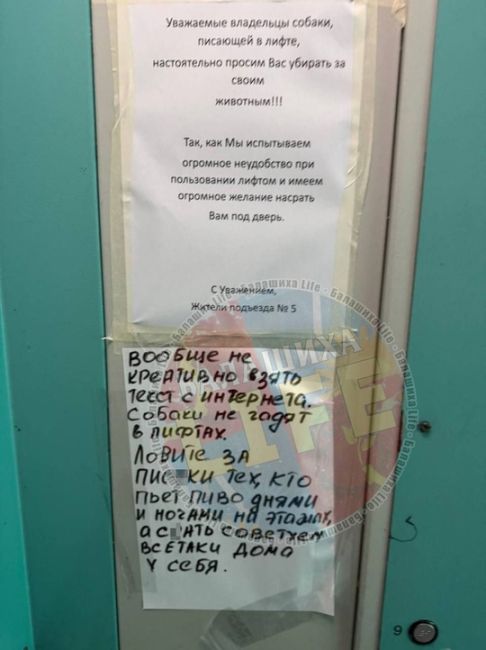 Уважаемые владельцы собаки,
писающей в лифте,
настоятельно просим Вас убирать за
своим
животным!!!
Так, как Мы испытываем
огромное неудобство при
пользовании лифтом и имеем
огромное желание насрать
Вам под дверь.
С Уважением,
Жители подъезда № 5
ВООБЩЕ НЕ
КРЕАТИВНО ВЗЯТЬ
ТЕКСТ С ИНТЕРНЕТА.
СОБАКИ НЕ ГАДЯТ
В ЛИФТАХ.
ЛОВИТЕ ЗА
ПИС КИ ТЕХ, КТО
ПЬЕТ ПИВО ДНЯМИ
И НОЧАМИ НА ЭТАЖАХ,
А С АТЬ СОВЕТУЕМ
ВСЕТАКИ ДОМА
У СЕБЯ.
БАЛАШИХА
LIFE
Балашиха Life - Балашиха Life - Балашиха Life
9